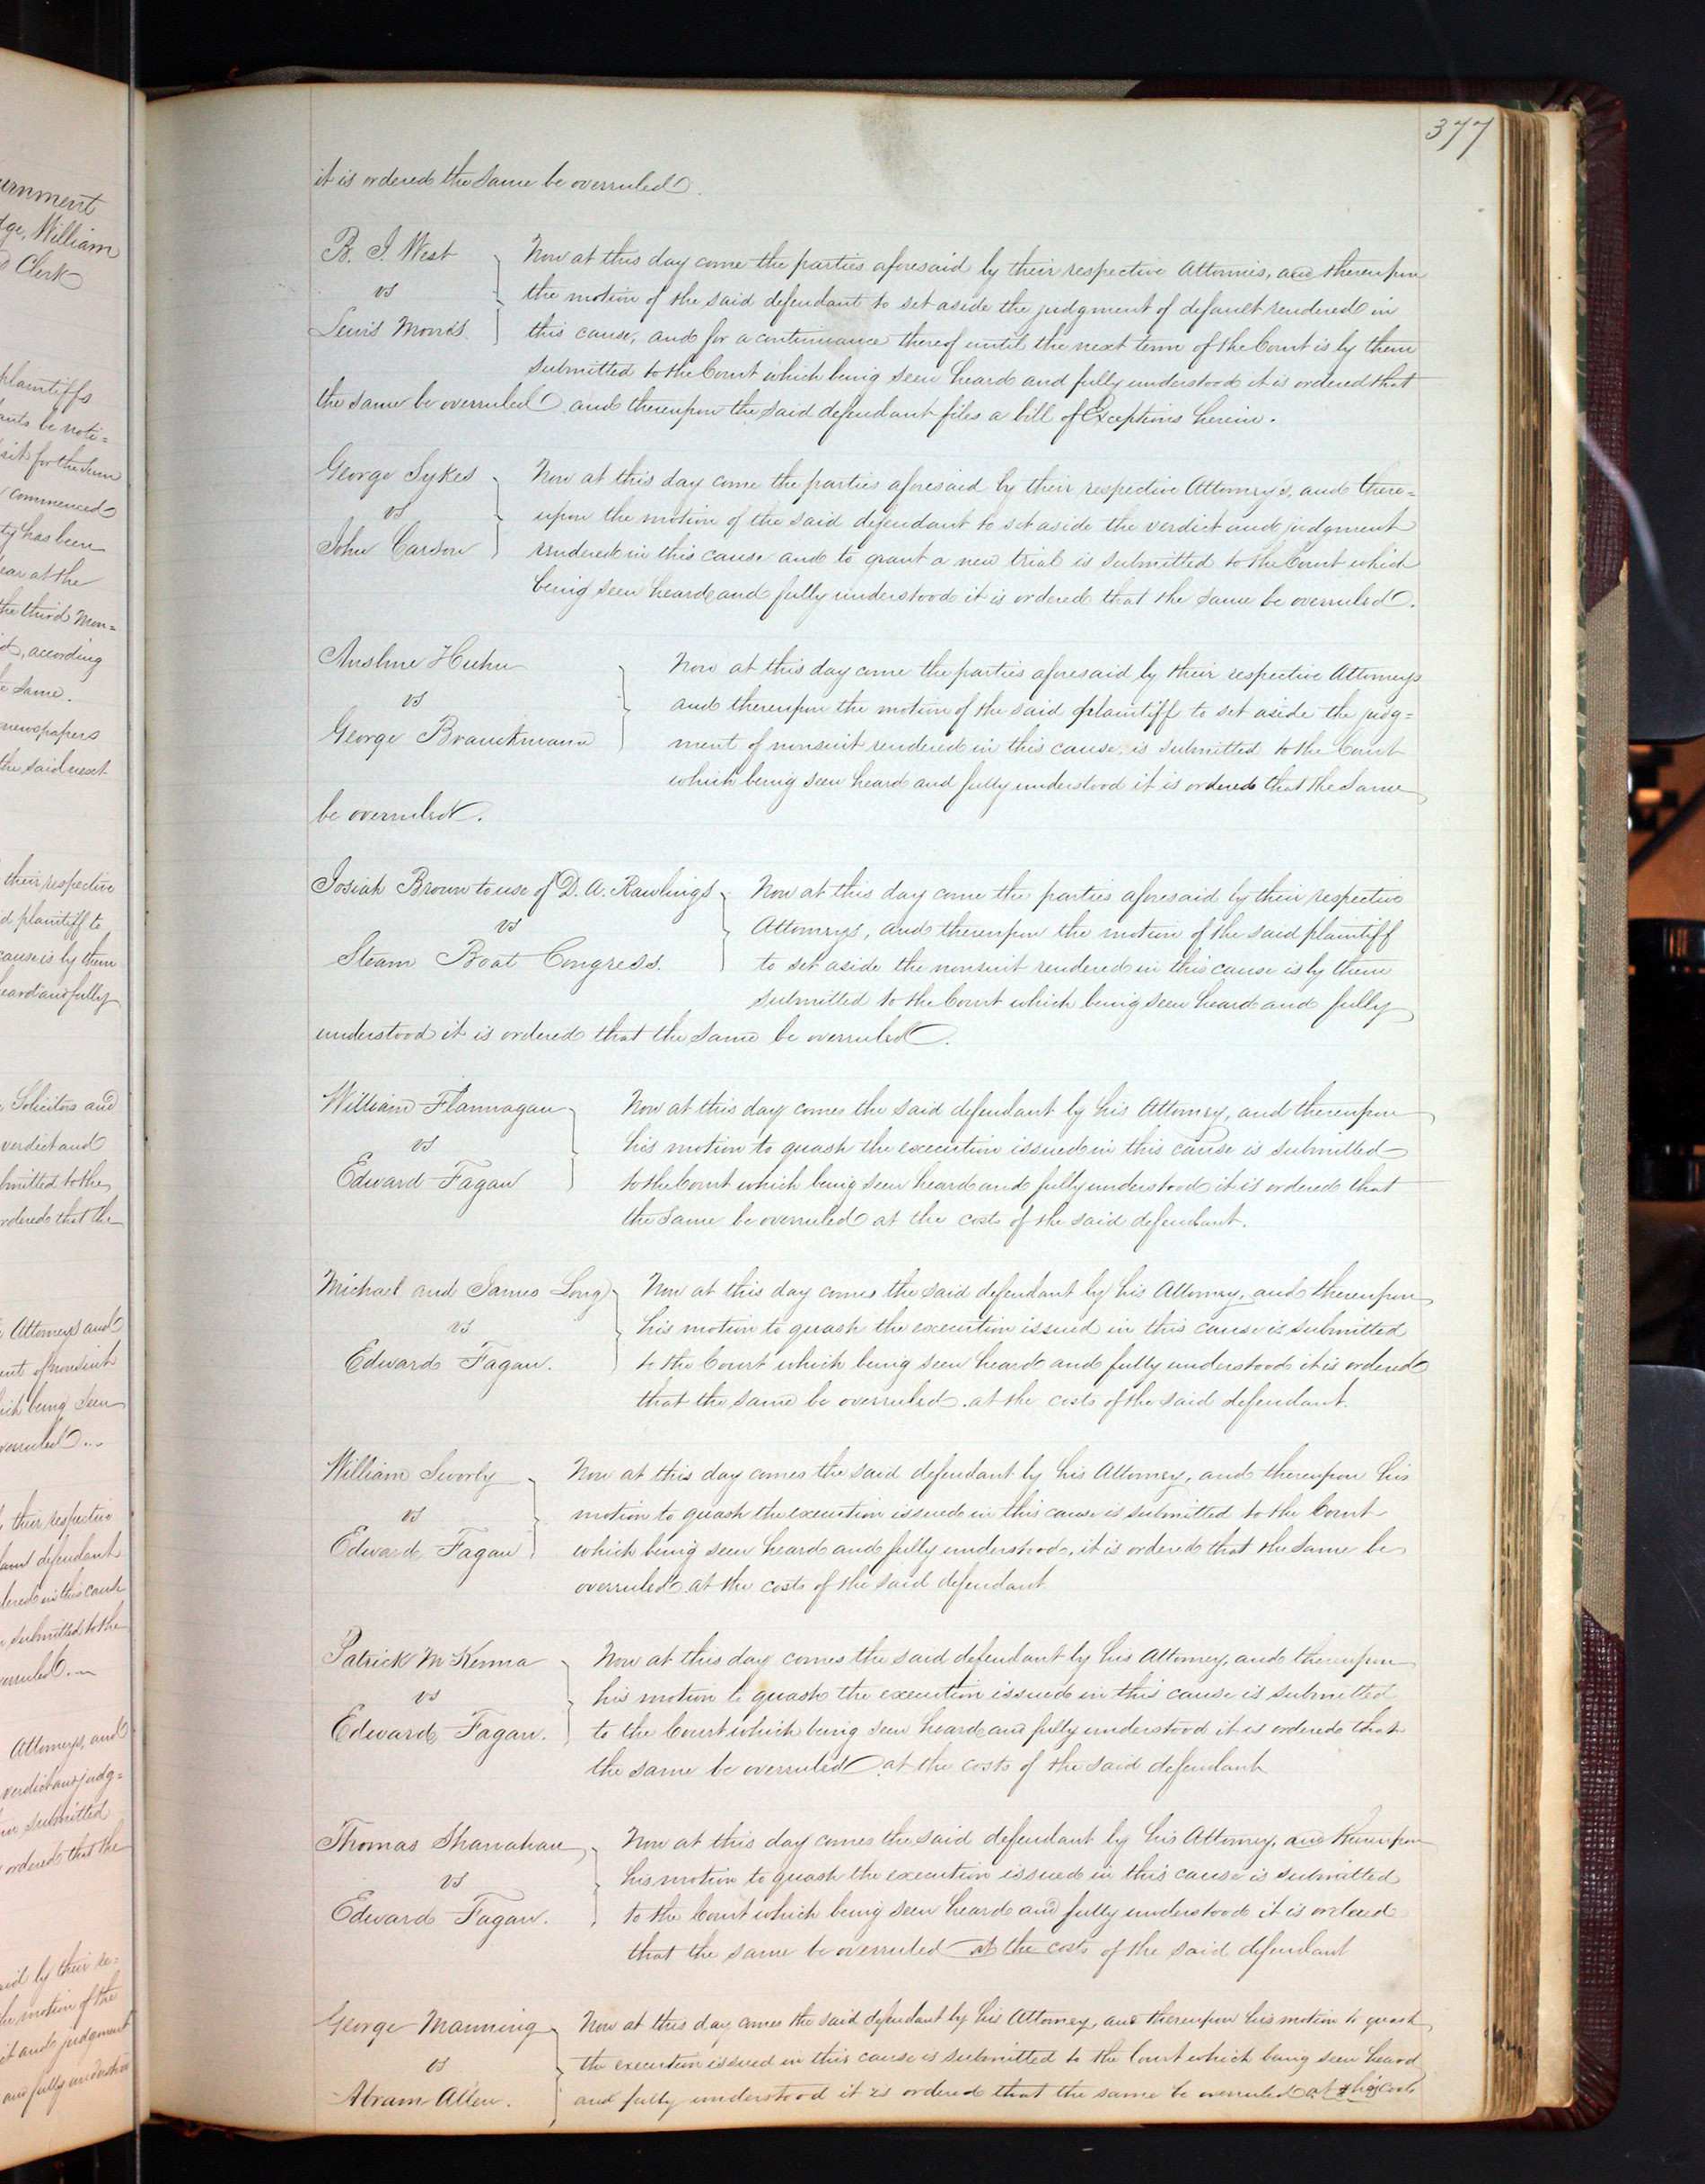 377
it is ordered the same be overruled.
B. I. West Now at this day come the parties aforesaid by their respective Attornies, and thereupon
vs the motion of the said defendant to set aside the judgment of default rendered in
Lewis Morris. this cause, and for a continuance thereof until the next term of the Court is by them
submitted to the Court which being seen heard and fully understood it is ordered that
the same be overruled and thereupon the said defendant files a bill of Exceptions herein.
George Sykes Now at this day come the parties aforesaid by their respective Attorney's, and there=
vs upon the motion of the said defendant to set aside the verdict and judgment
John Carson rendered in this cause and to grant a new trial is submitted to the Court which
being seen heard and fully understood it is ordered that the same be overruled.
Huhn Now at this day come the parties aforesaid by their respective Attorneys
vs and thereupon the motion of the said plaintiff to set aside the judg=
George Brauckmann ment of nonsuit rendered in this cause, is submitted to the Court
which being seen heard and fully understood it is ordered that the same
be overruled.
Josiah Brown to use of D. A. Rawlings Now at this day come the parties aforesaid by their respective
vs Attorneys, and thereupon the motion of the said plaintiff
Steam Boat Congress. to set aside the nonsuit rendered in this cause is by them
submitted to the Court which being seen heard and fully
understood it is ordered that the same be overruled.
William Flannagan Now at this day comes the said defendant by his Attorney, and thereupon
vs his motion to quash the execution issued in this cause is submitted
Edward Fagan to the Court which being seen heard and fully understood it is ordered that
the same be overruled at the costs of the said defendant.
Michael and James Long Now at this day comes the said defendant by his Attorney, and thereupon
vs his motion to quash the execution issued in this cause is submitted
Edward Fagan. to the Court which being seen heard and fully understood it is ordered
that the same be overruled at the costs of the said defendant.
William Now at this day comes the said defendant by his Attorney, and thereupon his
vs motion to quash the execution issued in this cause is submitted to the Court
Edward Fagan which being seen heard and fully understood, it is ordered that the same be
overruled at the costs of the said defendant
Patrick McKenna Now at this day comes the said defendant by his Attorney, and thereupon
vs his motion to quash the execution issued in this cause is submitted
Edward Fagan. to the Court which being seen heard and fully understood it is ordered that
the same be overruled at the costs of the said defendant
Thomas Shanahan Now at this day comes the said defendant by his Attorney, and thereupon
vs his motion to quash the execution issued in this cause is submitted
Edward Fagan. to the Court which being seen heard and fully understood it is ordered
that the same be overruled at the costs of the said defendant
George Manning Now at this day comes the said defendant by his Attorney, and thereupon his motion to quash
vs the execution issued in this cause is submitted to the Court which being seen heard
Abram Allen. and fully understood it is ordered that the same be overruled at his costs